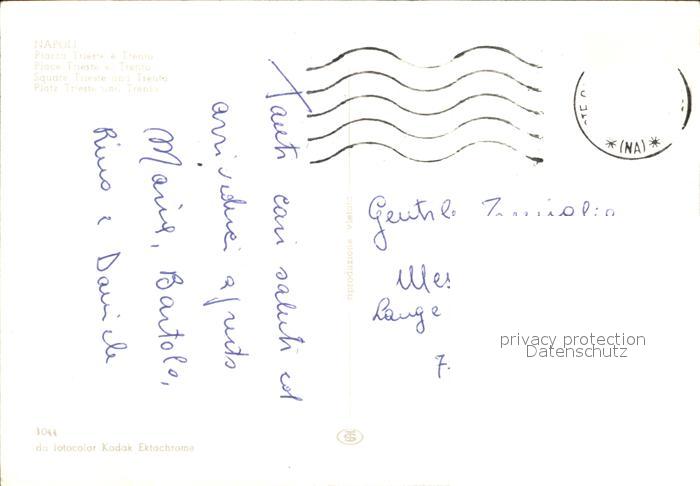 NAPOLI
Piazza Trieste e Trento
Place Trieste et Trento
Square Trieste and Trento
Platz Trieste und Trento
Tanti cari saluti ed
arrivederci a presto
Maria, Bartolo,
Rino e Daniele
riproduzione vietata
*(NA)*
Gentile Famiglia
Lange
7.
privacy protection
Datenschutz
1044
da fotocolor Kodak Ektachrome